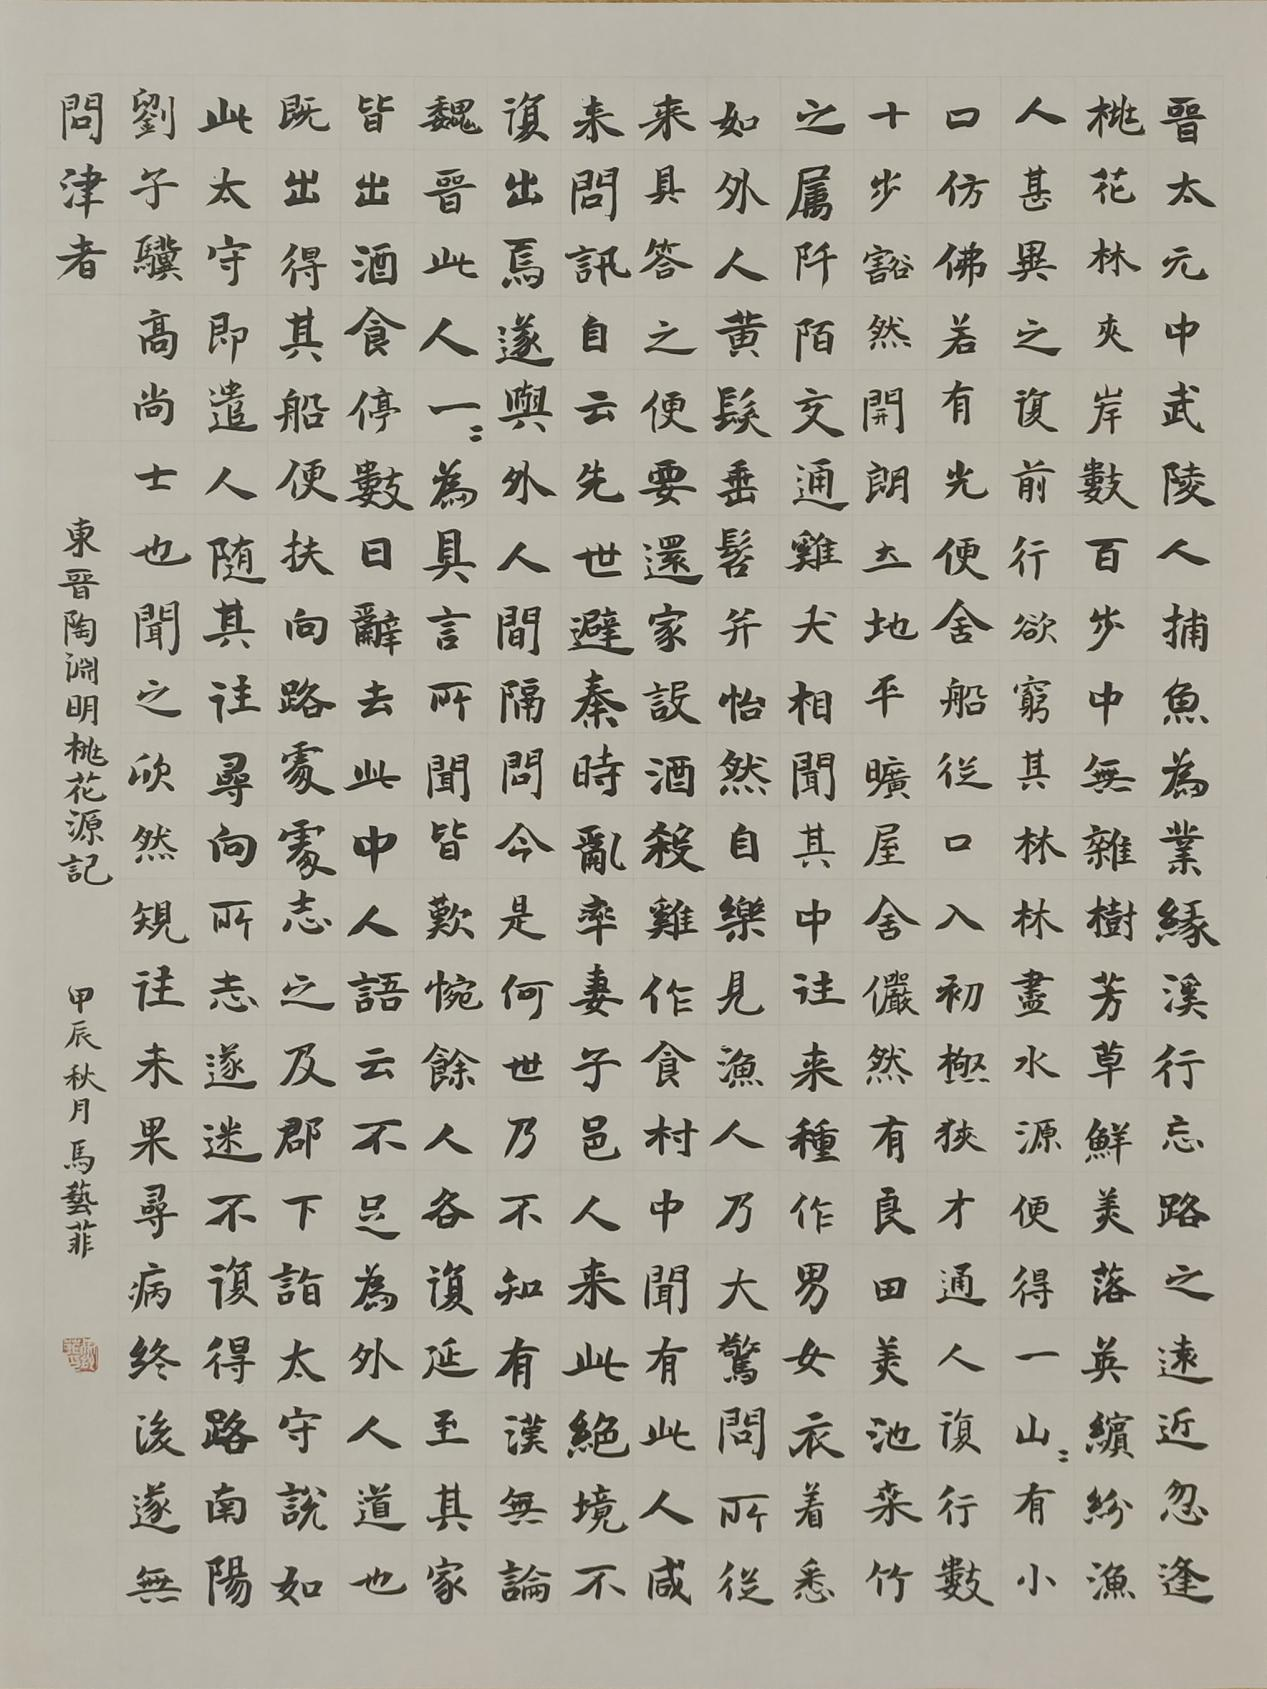 晉太元中武陵人捕魚為業緣溪行忘路之遠近忽逢
桃花林夾岸數百步中無雜樹芳草鮮美落英繽紛漁
人甚異之復前行欲窮其林林盡水源便得一山〻有小
口仿佛若有光便舍船從口入初極狹才通人復行數
十步豁然開朗土地平曠屋舍儼然有良田美池桒竹
之属阡陌交通雞犬相聞其中往来種作男女衣着悉
如外人黄髮垂髫并怡然自樂見漁人乃大驚問所從
来具答之便要還家設酒殺雞作食村中聞有此人咸
来問訊自云先世避秦時亂率妻子邑人来此絕境不
復出焉遂與外人間隔問今是何世乃不知有漢無論
魏晉此人一〻為具言所聞皆歎惋餘人各復延至其家
皆出酒食停數日辭去此中人語云不足為外人道也
既出得其船便扶向路處處志之及郡下詣太守說如
此太守即遣人随其往尋向所志遂迷不復得路南陽
劉子驥高尚士也聞之欣然規往未果尋病終後遂無
問津者
東晉陶淵明桃花源記 甲辰秋月馬藝菲